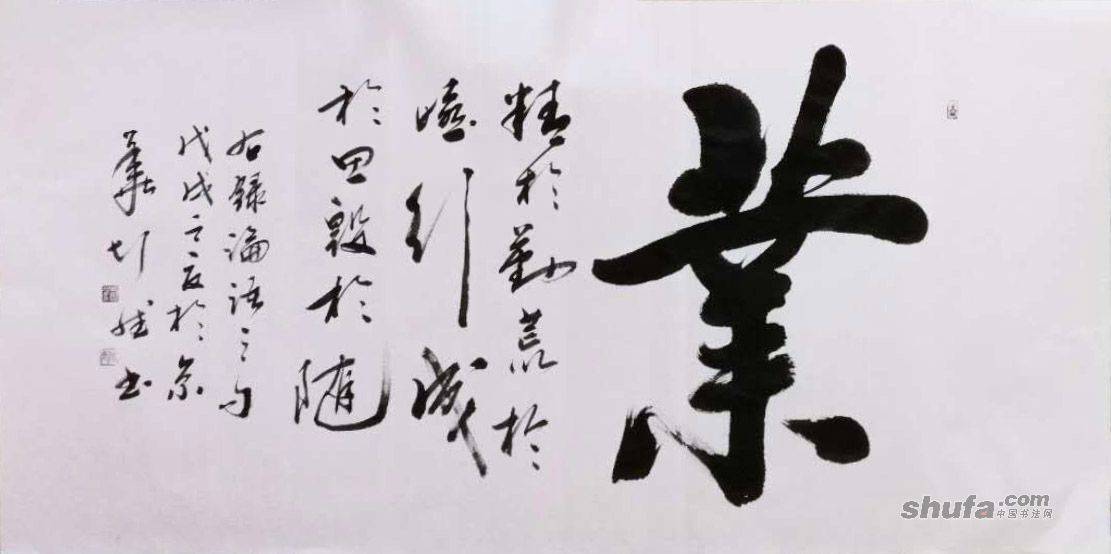 業
精於勤荒於
嬉行成
於思毀於隨
右錄論語之句
戊戌之夏於京
書
shufa.com
中国书法网